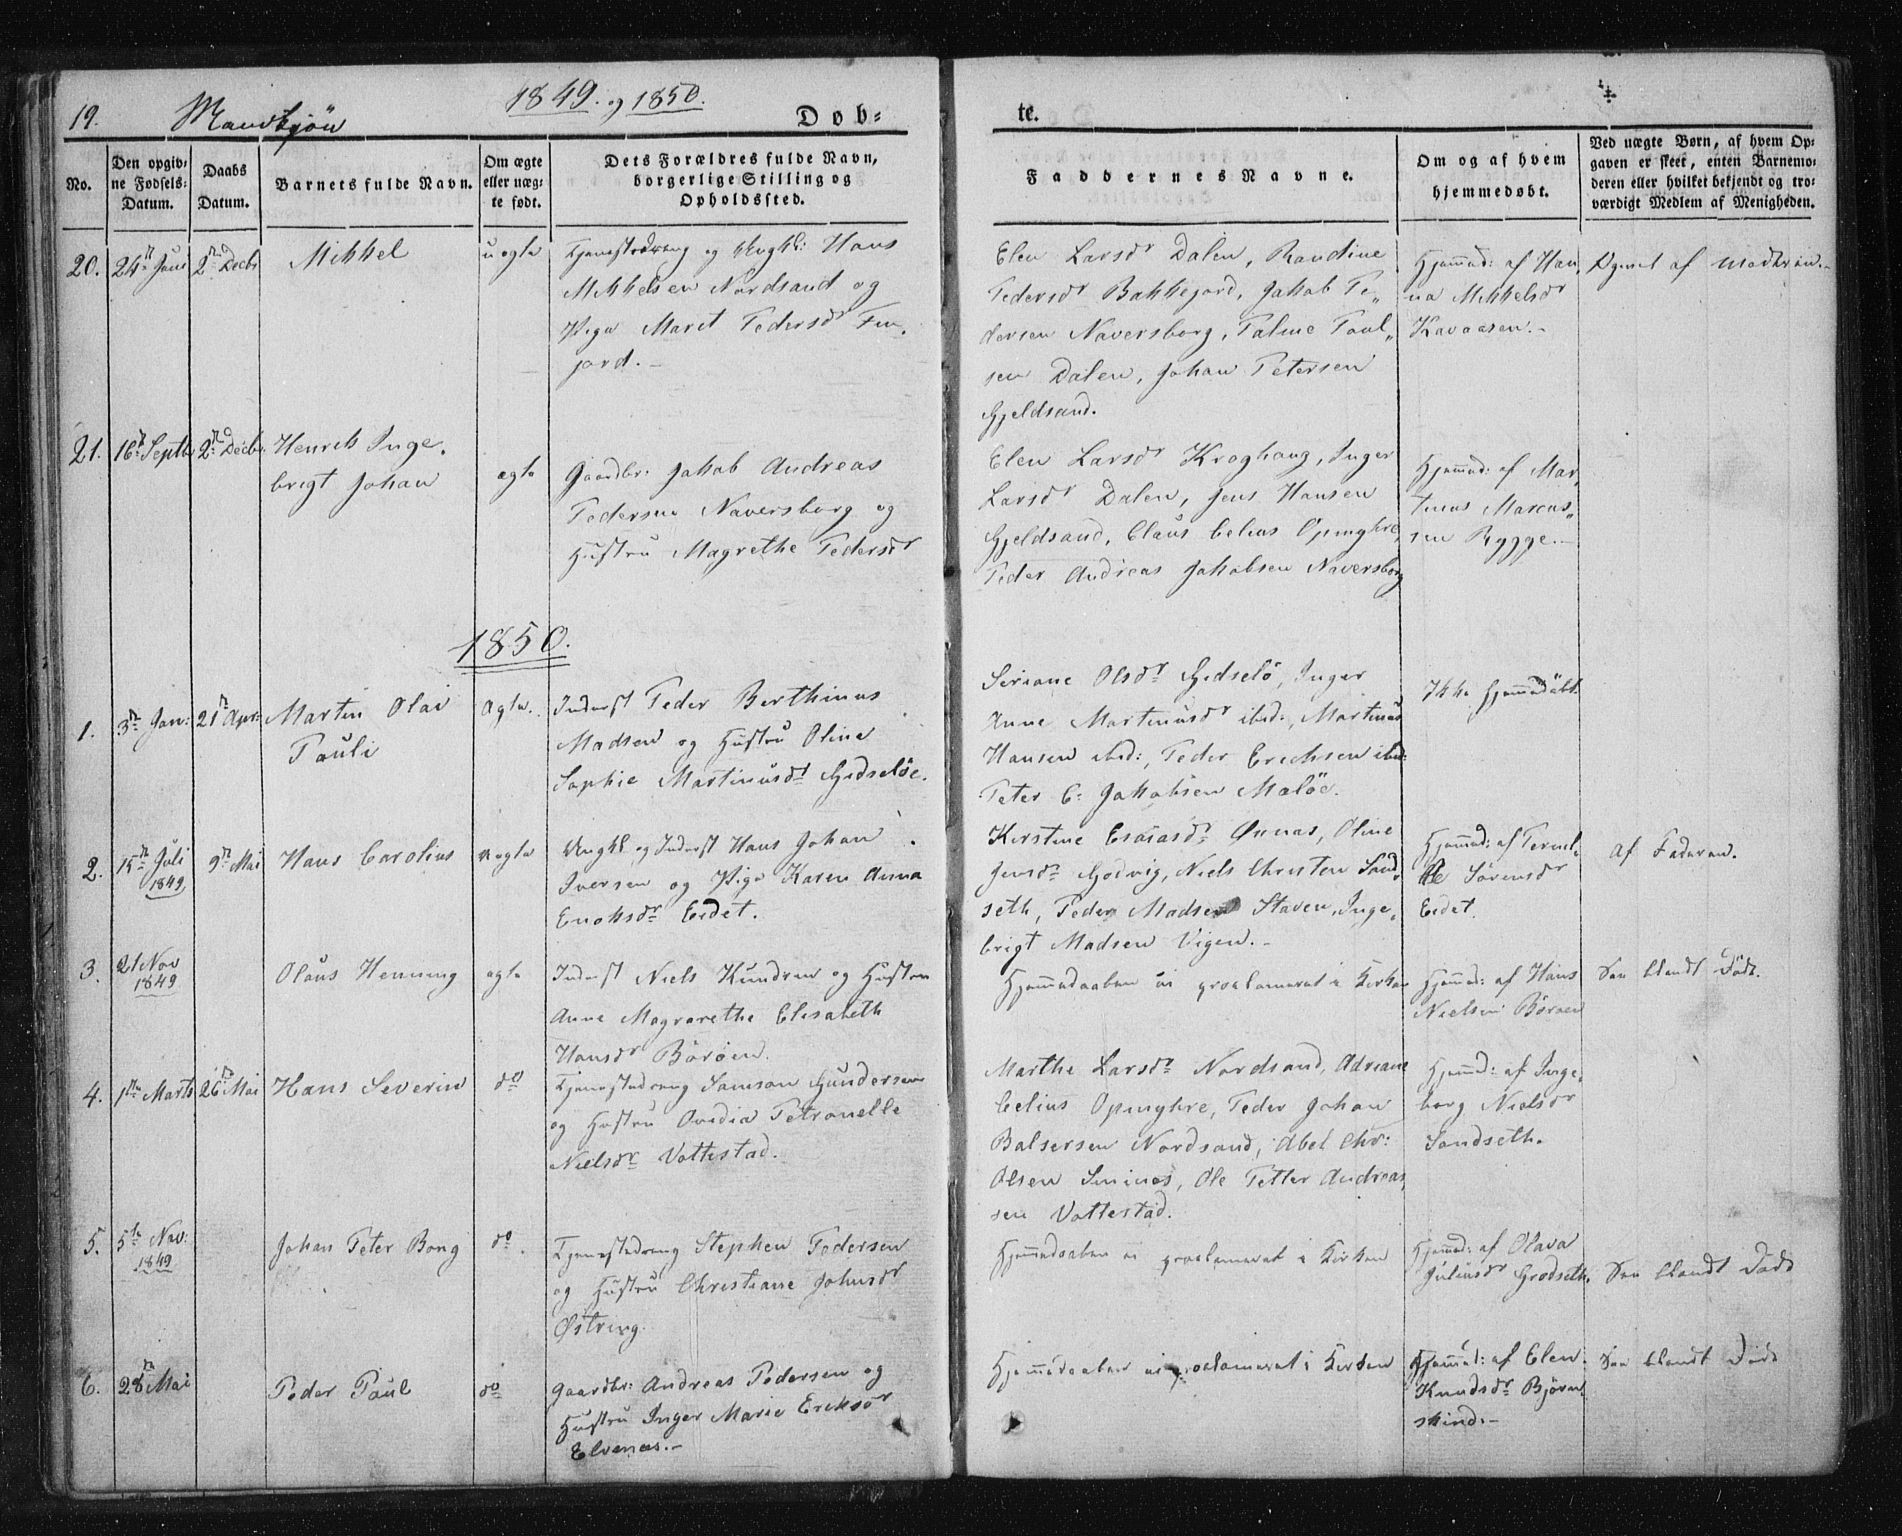 19.
Mandkjön
1849. og 1850.
Dob-
te.
No.
Den opgiv-
ne Fødsels-
Datum.
Daabs
Datum.
Barnets fulde Navn.
Om ægte
eller uæg-
te født.
Dets Forældres fulde Navn,
borgerlige Stilling og
Opholdssted.
Faddernes Navne.
Om og af hvem
hjemmedøbt.
Ved uægte Børn, af hvem Op-
gaven er skeet, enten Barnemo-
deren eller hvilket bekjendt og tro-
værdigt Medlem af Menigheden.
20.
24de Juni
2den Decbr
Mikkel
uægte
Tjenestedreng og Ungkl: Hans
Mikkelsen Nordsand og
Pige Maret Pedersdr Fin-
jord.-
Elen Larsdr Dalen, Randine
Pedersdr Bakkejord, Jakob Pe-
dersen Naversborg, Palme Poul-
sen Dalen, Johan Petersen
Gjeldsand.
Hjemmed: af Han-
na Mikkelsdr
Kavaasen.-
Opgivet af Moderen.-
21.
16de Septb
2den Decbr
Henrik Inge-
brigt Johan
ægte
Gaardbr: Jakob Andreas
Pedersen Naversborg og
Hustru Magrethe Pedersdr
Elen Larsdr Kroghaug, Inger
Larsdr Dalen, Jens Hansen
Gjeldsand, Claus Celius Opinghre,
Peder Andreas Jakobsen Naversborg
Hjemmed: af Mar-
tinus Marcus-
sen Rygge.-
1850.
1.
3de Jan:
21de Apr:
Martin Olai
Pauli
Ægte.
Inderst Peder Berthinus
Madsen og Hustru Oline
Sophie Martinusdr Gjedselöe.
Seriane Olsdr Gjedselö, Inger
Anne Martinusdr ibid:, Martinus
Hansen ibid:, Peder Erichsen ibid:
Peter C: Jakobsen Maløe.
Ikke hjemmedöbt.
2.
15de Juli
1849
9de Mai
Hans Carolius
uægte
Ungkl og Inderst Hans Johan
Iversen og Pige Karen Anna
Enoksdr Eidet.
Kirstine Esaiasdr Ønnas, Oline
Jensdr Godvig, Niels Christen Sand-
seth, Peder Madsen Staven, Inge-
brigt Madsen Vigen.-
Hjemmed: af Pernil-
le Sörensdr
Eidet.
Af Faderen.
3.
21 Nov
1849
Olaus Henning
ægte
Inderst Niels Kundsen og Hustru
Anne Magrarethe Elisabeth
Hansdr Böröen.
Hjemmedaaben ei proclameret i Kirken
Hjemmed: af Hans
Nielsen Böröen
See blandt Døde.
4.
1ste Marts
26de Mai
Hans Severin
do
Tjenestedreng Samson Gundersen
og Hustru Ovidia Petronelle
Nielsdr Vottestad.
Marthe Larsdr Nordsand, Adriane
Celius Opinghre, Peder Johan
Balsersen Nordsand, Abel Chr:
Olsen Smines, Ole Petter Andreas-
sen Vottestad.
Hjemmed: af Inge-
borg Nielsdr
Sandseth.
5.
5te Nov:
1849
Johan Peter Bong
do.
Tjenestedreng Stephen Pedersen
og Hustru Christiane Johnsdr
Østreng.
Hjemmedaaben ei proclameret i Kirken
Hjemmed: af Olava
Juliusdr Grødseth.
See blandt Døde
6.
28de Mai
Peder Paul
do
Gaardbr: Andreas Pedersen og
Hustru Inger Marie Eriksdr
Elvenes.-
Hjemmedaaben ei proclameret i Kirken
Hjemmed: af Elen
Knudsdr Bjørn-
skind.-
See blandt Døde